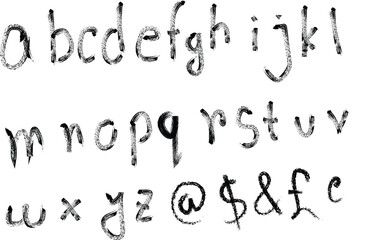 a b c d e f g h i j k l
m n o p q r s t u v
w x y z @ $ & £ c